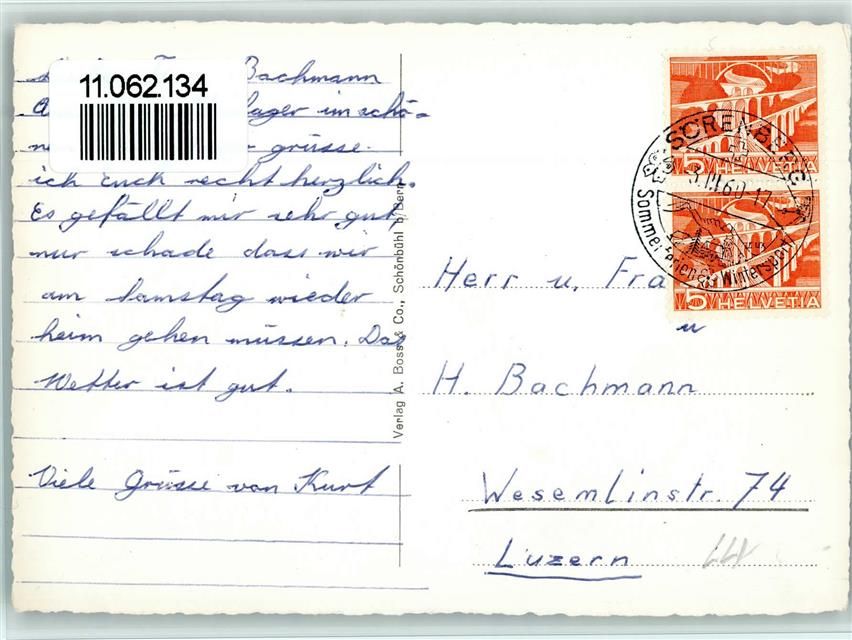 11.062.134
Bachmann
lager im schö-
grüsse
ich Euch recht herzlich.
Es gefällt mir sehr gut,
nur schade dass wir
am Samstag wieder
heim gehen müssen. Das
Wetter ist gut.
Viele Grüsse von Kurt
Verlag A. Boss & Co., Schönbühl b/Bern
5 HELVETIA
SÖRENBERG
3.III.60-17
Sommerferien & Wintersport
5 HELVETIA
Herr u. Fra
u
H. Bachmann
Wesemlinstr. 74
Luzern